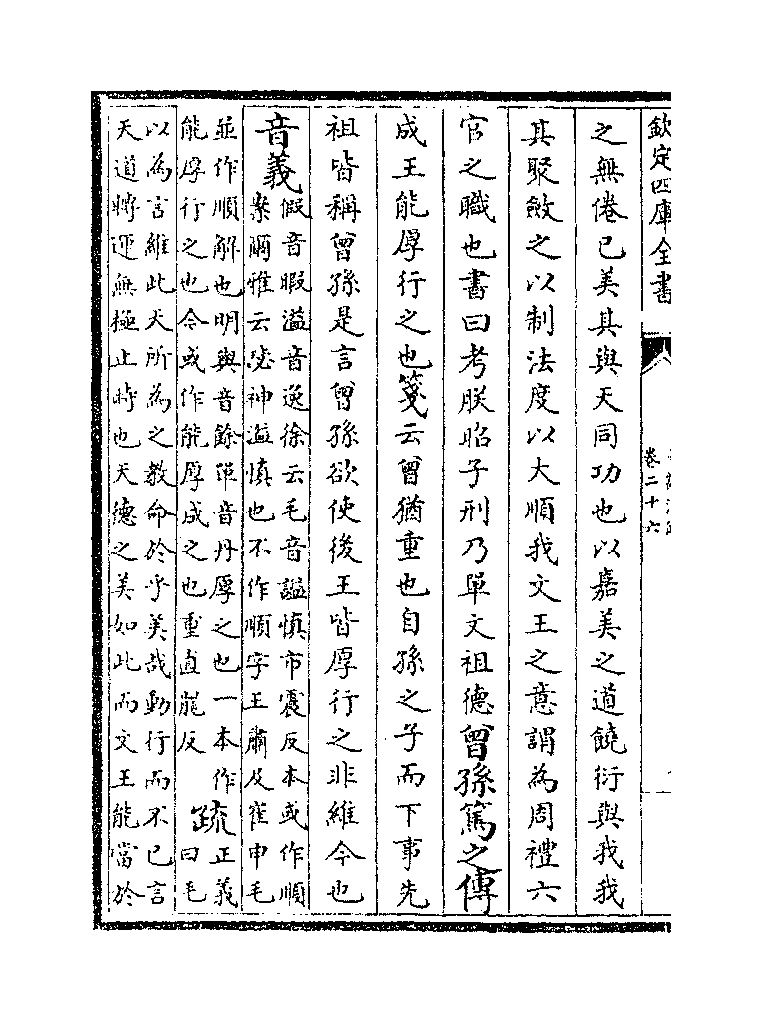 欽定四庫全書
卷二十六
之無倦已美其與天同功也以嘉美之道饒衍與我我
其聚斂之以制法度以大順我文王之意謂為周禮六
官之職也書曰考朕昭子刑乃單文祖德曾孫篤之傳
成王能厚行之也箋云曾猶重也自孫之子而下事先
祖皆稱曾孫是言曾孫欲使後王皆厚行之非維今也
音義假音暇溢音逸徐云毛音謐慎市震反本或作順
案爾雅云毖神溢慎也不作順字王肅及崔申毛
並作順解也明與音餘單音丹厚之也一本作
能厚行之也今或作能厚成之也重直龍反
疏正義
曰毛
以為言維此天所為之教命於乎美哉動行而不已言
天道轉運無極止時也天德之美如此而文王能當於